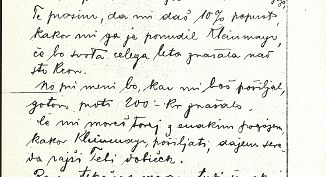 Te prosim, da mi daš 10% popust,
kakor mi ga je ponudil Kleinmayr,
če bo svota celega leta znašala nad
sto Kron.
No pri meni bo, kar mi boš pošiljal,
gotovo proti 200 - Kr znašalo.
Če mi moreš torej z enakim
kakor Kleinmayr, pošiljati, dajem seve-
da rajši Tebi dobiček.